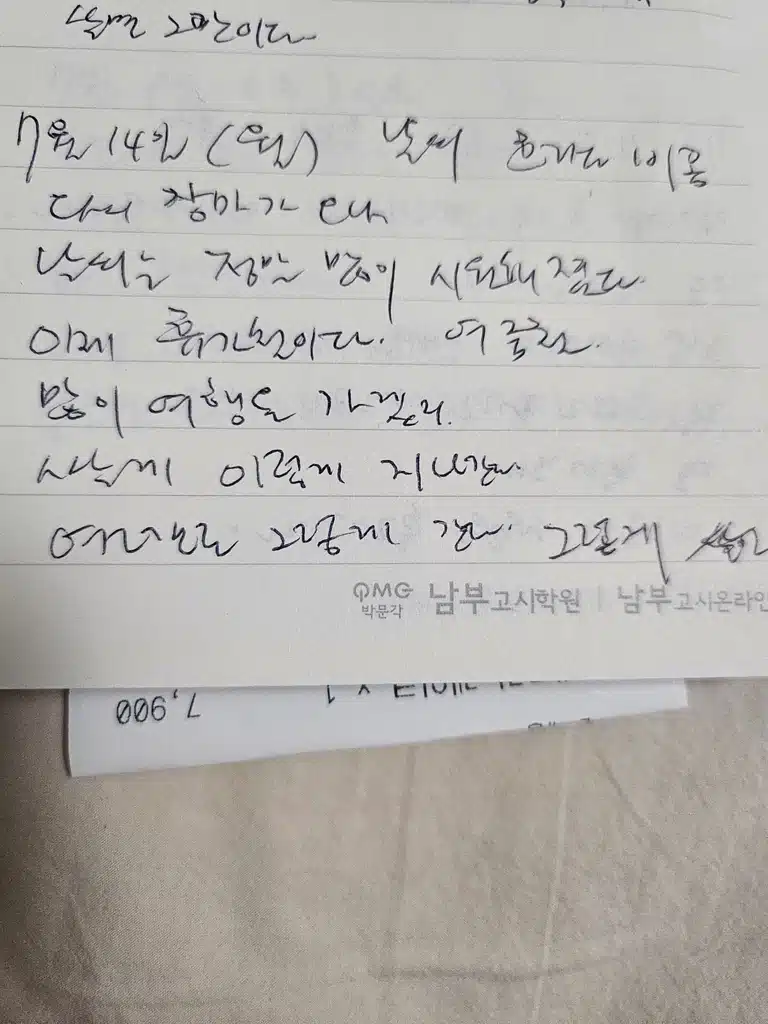 살면 그만이다.
7월 14일 (월) 날씨 흐리다 비옴
다시 장마가 다.
날씨는 정말 많이 시원해졌다.
이제 휴가철이다. 여름철.
많이 여행도 가겠지.
사는게 이렇게 지나간다.
그렇게 간다. 그렇게
박문각 남부고시학원 | 남부고시온라인
7,900
x 1